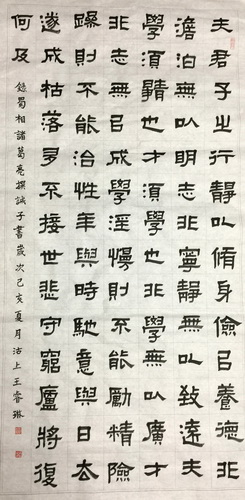 夫君子之行靜以脩身儉㠯養德非
澹泊無以明志非寧靜無以致遠夫
學須靜也才須學也非學無以廣才
非志無㠯成學淫慢則不能勵精險
躁則不能治性年與時馳意與日去
遂成枯落多不接世悲守窮廬將復
何及 錄蜀相諸葛亮撰誡子書歲次己亥夏月沽上王睿琳